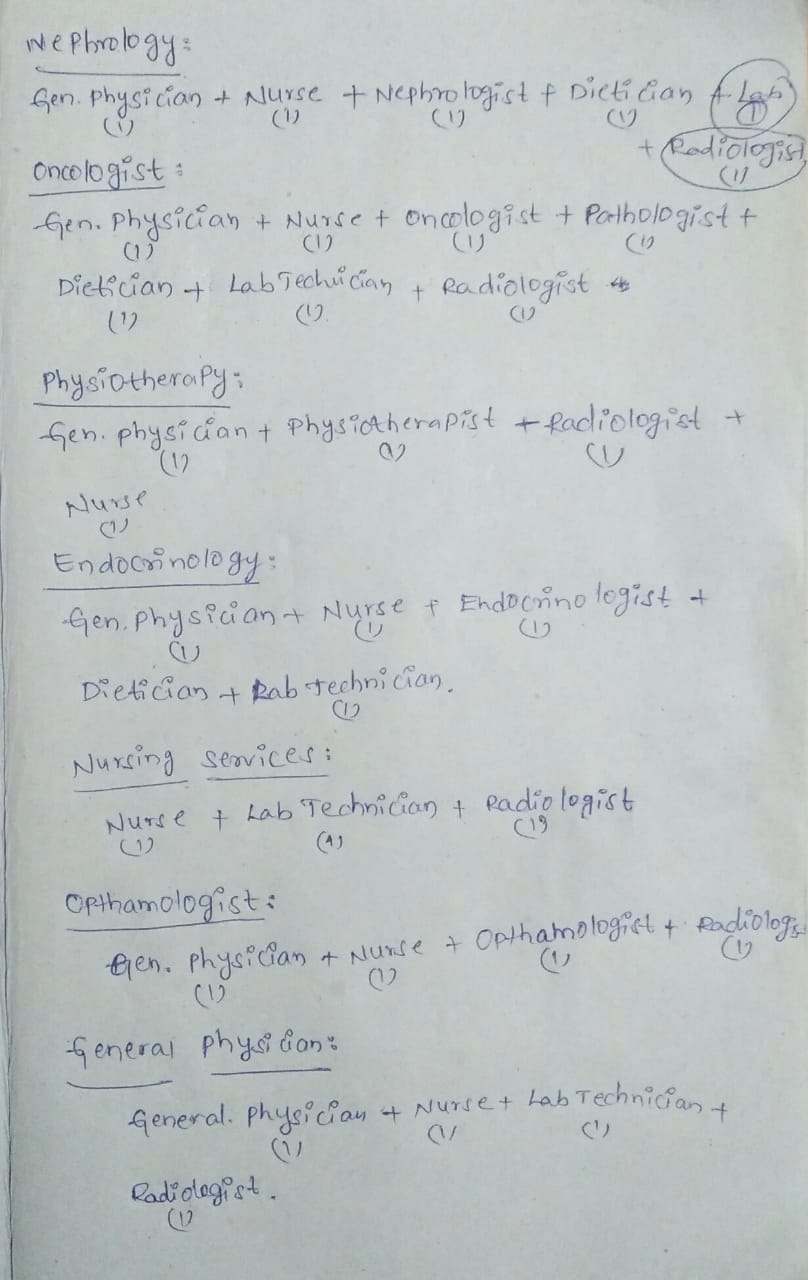 Nephrology:
Gen. Physician + Nurse + Nephrologist + Dietician + Lab
(1) (1) (1) (1) (1)
+ Radiologist
(1)
Oncologist:
Gen. Physician + Nurse + Oncologist + Pathologist +
(1) (1) (1) (1)
Dietician + Lab Technician + Radiologist
(1) (1) (1)
Physiotherapy:
Gen. physician + Physiotherapist + Radiologist +
(1) (1) (1)
Nurse
(1)
Endocrinology:
Gen. Physician + Nurse + Endocrinologist +
(1) (1) (1)
Dietician + Lab technician.
(1)
Nursing services:
Nurse + Lab Technician + Radiologist
(1) (1) (1)
Opthamologist:
Gen. Physician + Nurse + Opthamologist + Radiologis
(1) (1) (1) (1)
General Physician:
General. Physician + Nurse + Lab Technician +
(1) (1) (1)
Radiologist.
(1)